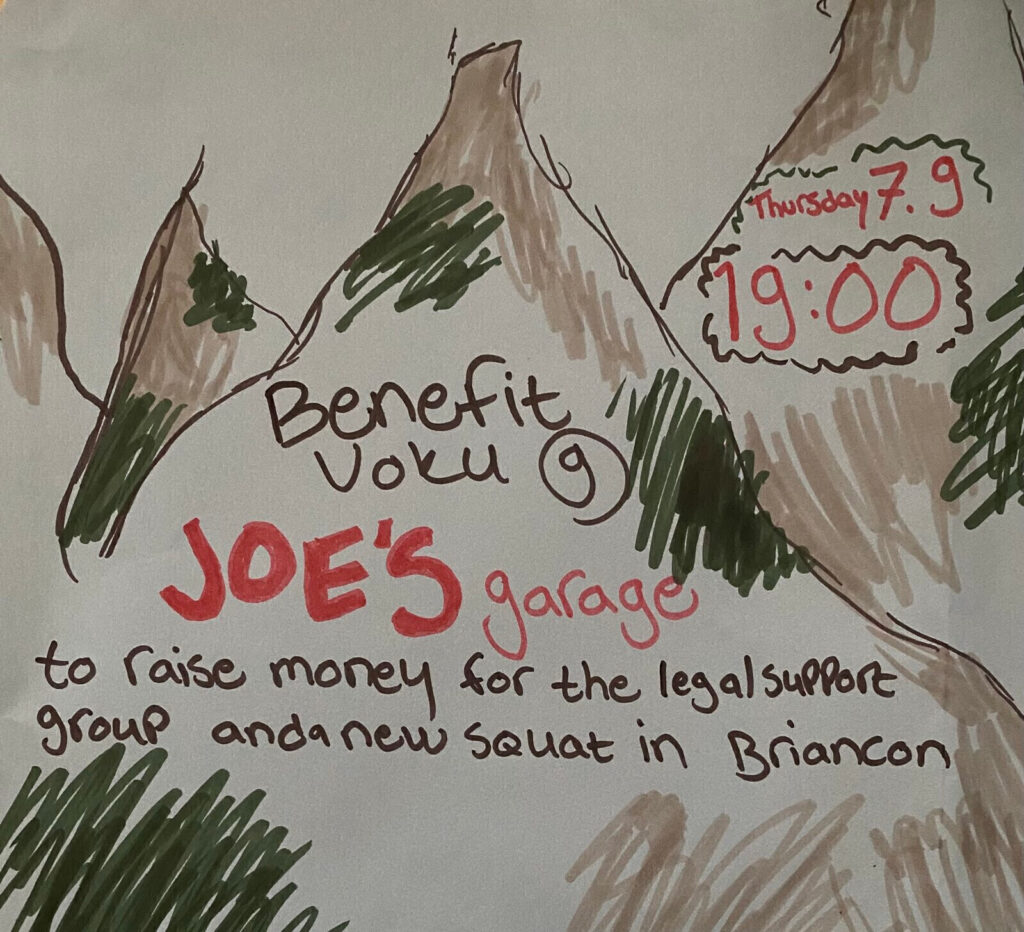 Thursday 7.9
19:00
Benefit
Voku @
JOE'S garage
to raise money for the legal support
group and a new squat in Briancon